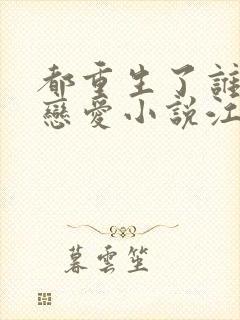 都重生了誰
戀愛小說江
暮雲笙